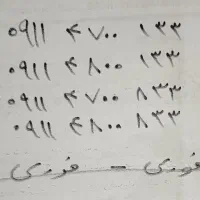 ۰۹۱۱ ۴۷۰۰ ۱۳۳
۰۹۱۱ ۴۸۰۰ ۱۳۳
۰۹۱۱ ۴۷۰۰ ۸۳۳
۰۹۱۱ ۴۸۰۰ ۸۳۳
فوری - فوری